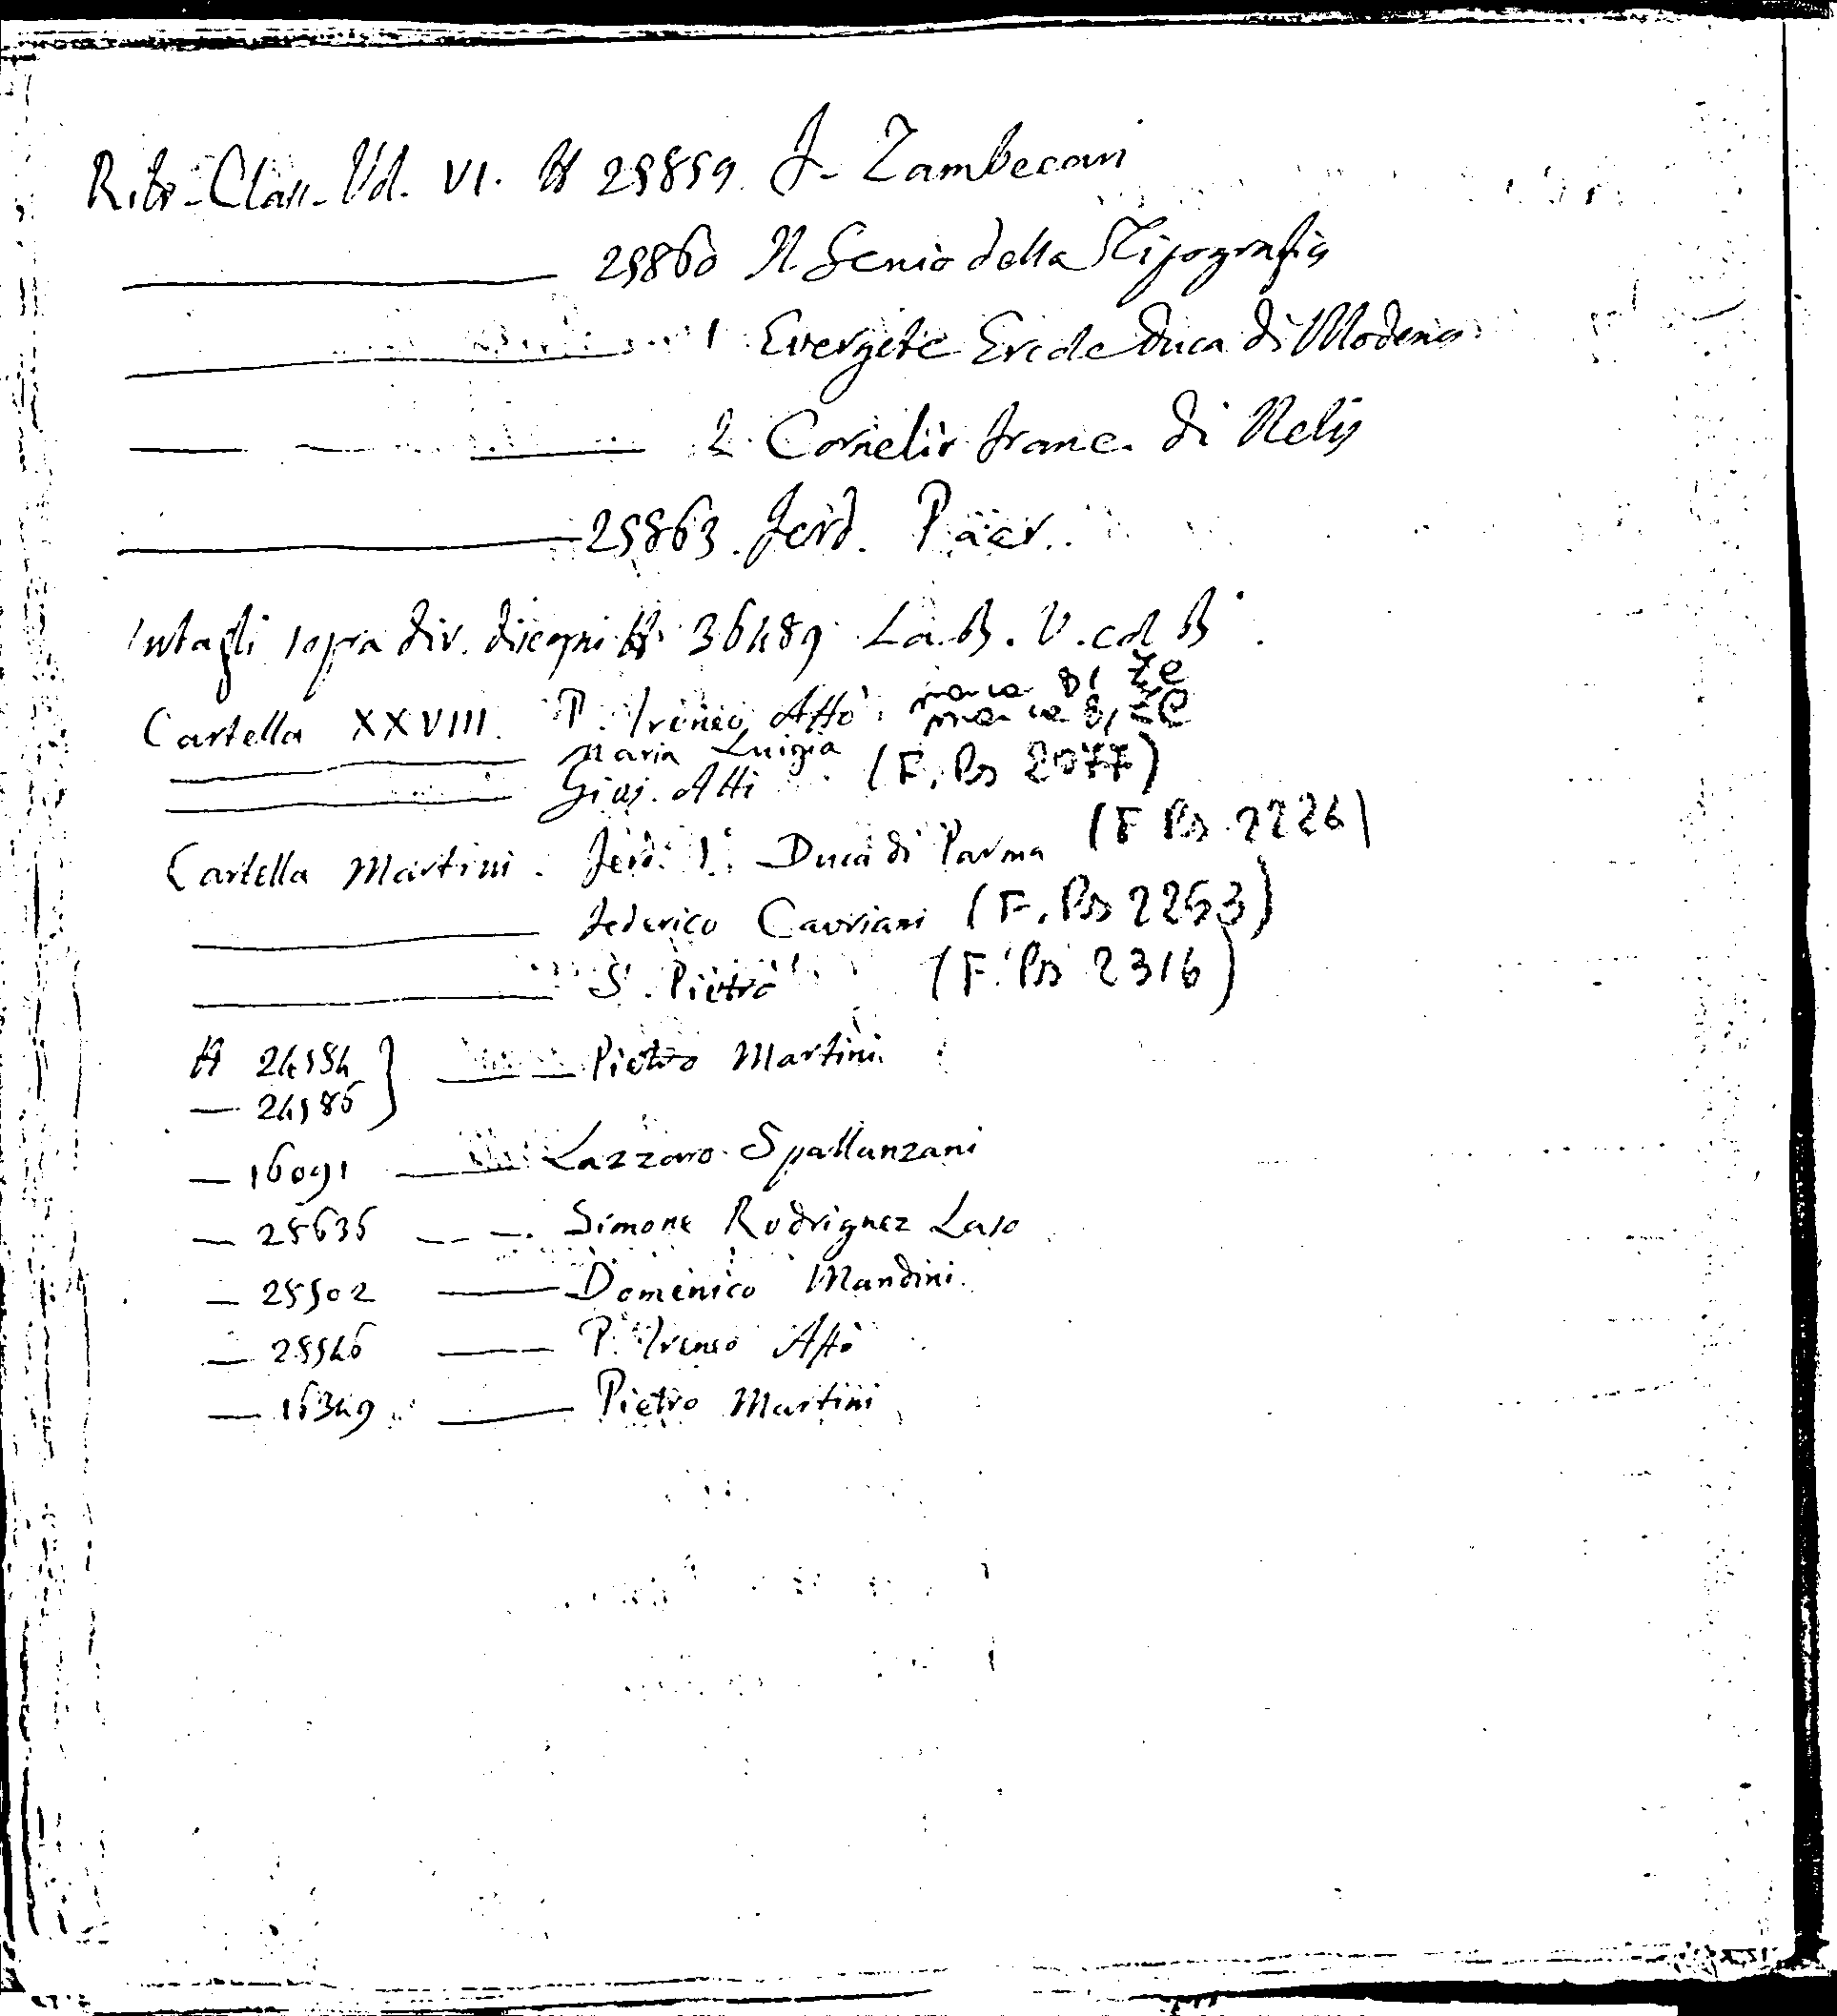 Ritr. Class. Vol. VI. N 25859. F. Zambeccari
25860 Il Genio della Tipografia
1 Evergete Erede Duca di Modena
2 Cornelio Franc. di Nelis
25863. Ferd. Päer.
Intagli sopra div. disegni N. 36489 La B. V. col B.
Cartella XXVIII. P. Ireneo Affò manca 81
Maria Luigia manca 81
Gius. Atti (F. Bs 2077)
Cartella Martini. Ferd. I. Duca di Parma (F Bs 2226)
Federico Cavriani (F. Bs 2263)
S. Pietro (F. Bs 2316)
N 24584 Pietro Martini
24586
16091 Lazzaro Spallanzani
25636 Simone Rodriguez Laso
25502 Domenico Mandini
25546 P. Ireneo Affò
16349 Pietro Martini